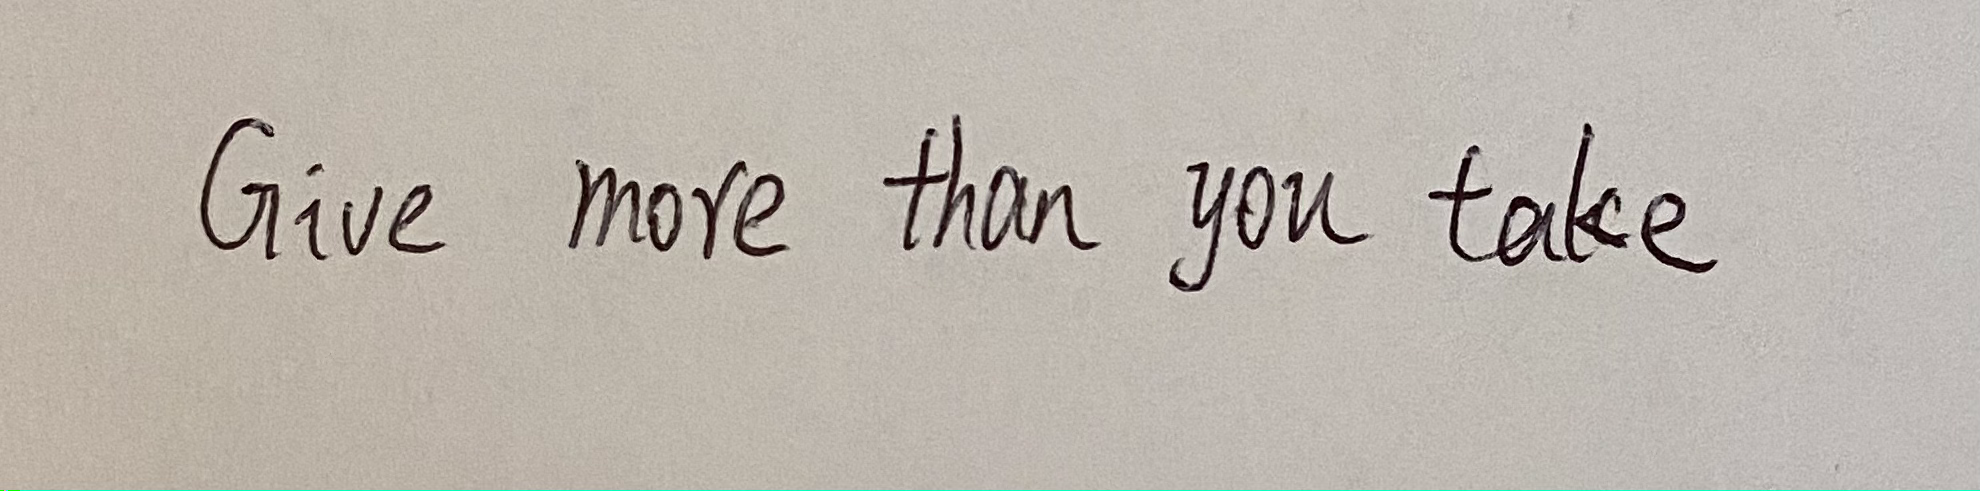 Give more than you take